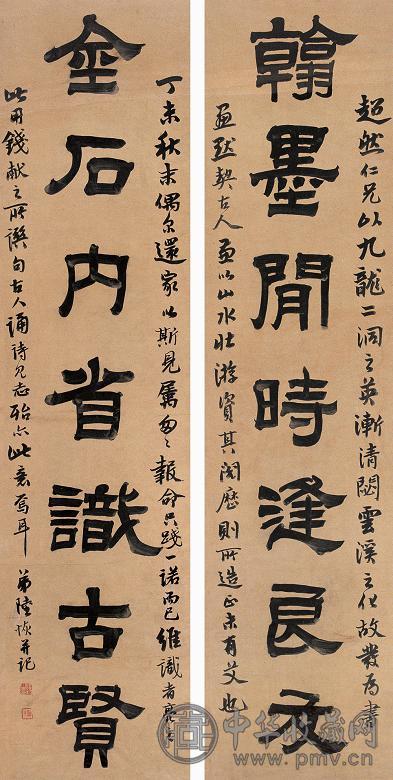 超然仁兄以九龍二洞之英漸清閟雲溪之化故發为書
翰墨閒時逢良友
画默契古人並以山水壮游資其閱歷則所造正未有艾也
丁未秋末偶尔還家以斯見属匆々報命只踐一諾而已維識者亮之
金石内省識古賢
此用錢献之所譔句古人誦詩見志殆亦此意寫耳 弟陸恢并記
中华收藏网
www.pmv.cn